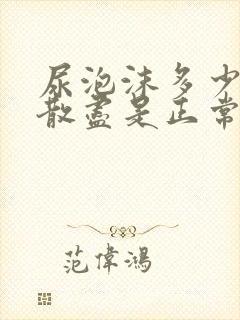 尿泡沫多少
散盡是正常
范偉鴻